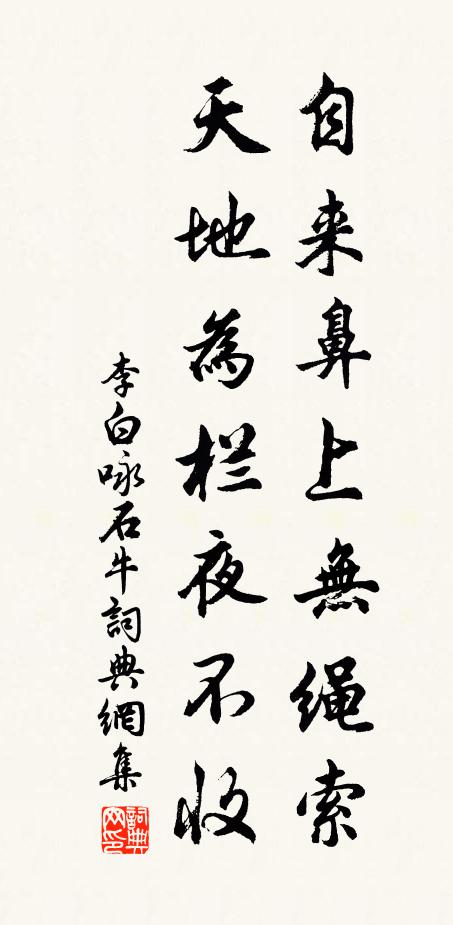 自来鼻上無绳索
天地為栏夜不收
李白咏石牛詞典網集
詞典网印